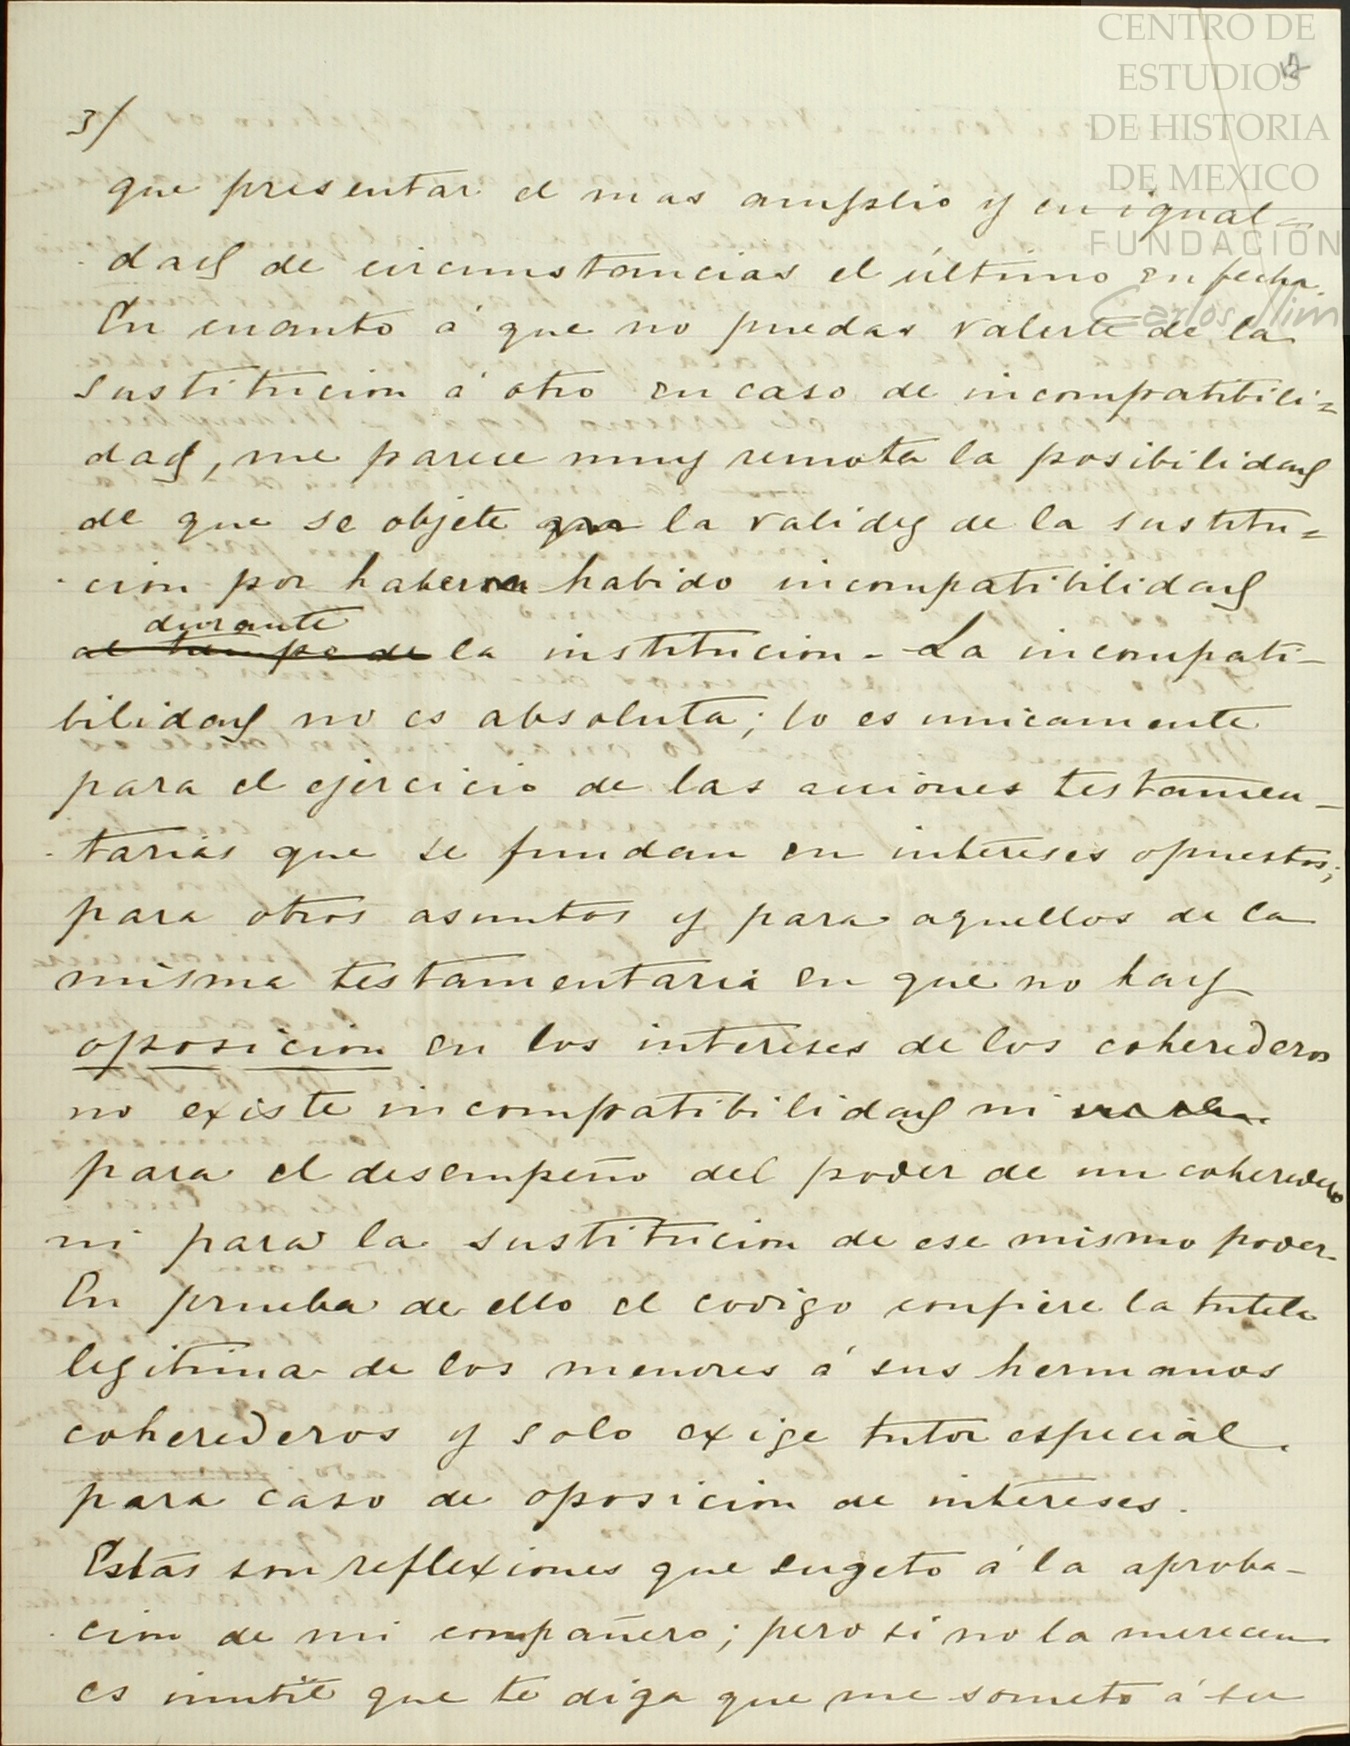 CENTRO DE
ESTUDIOS
DE HISTORIA
DE MEXICO
FUNDACIÓN
Carlos Slim
12
3/
que presentar el mas amplio y en igual=
dad de circunstancias el último en fecha.
En cuanto á que no puedas valerte de la
sustitucion á otro en caso de incompatibili=
dad, me parece muy remota la posibilidad
de que se objete la validez de la sustitu=
cion por haber habido incompatibilidad
durante
al tiempo de la institucion - La incompati-
bilidad no es absoluta; lo es unicamente
para el ejercicio de las acciones testamen-
tarias que se fundan en intereses opuestos;
para otros asuntos y para aquellos de la
misma testamentaria en que no hay
oposicion en los intereses de los coherederos
no existe incompatibilidad ni
para el desempeño del poder de un coheredero
ni para la sustitucion de ese mismo poder.
En prueba de ello el codigo confiere la tutela
legitima de los menores á sus hermanos
coherederos y solo exige tutor especial
para caso de oposicion de intereses.
Estas son reflexiones que sugeto á la aproba-
cion de mi compañero; pero si no la merecen
es inutil que te diga que me someto á su